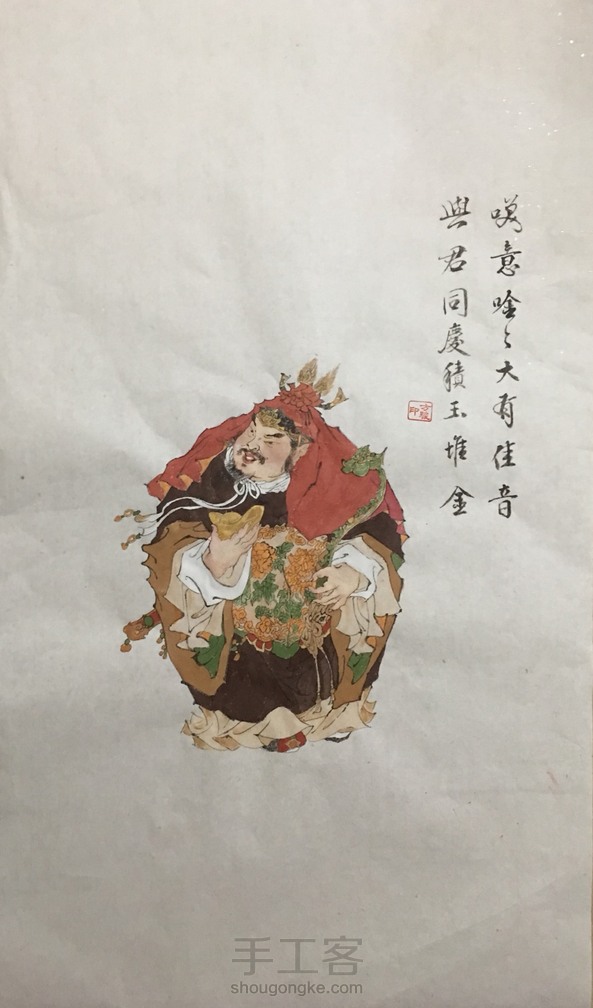 意唫〻大有佳音
與君同慶積玉堆金
印
手工客
shougongke.com